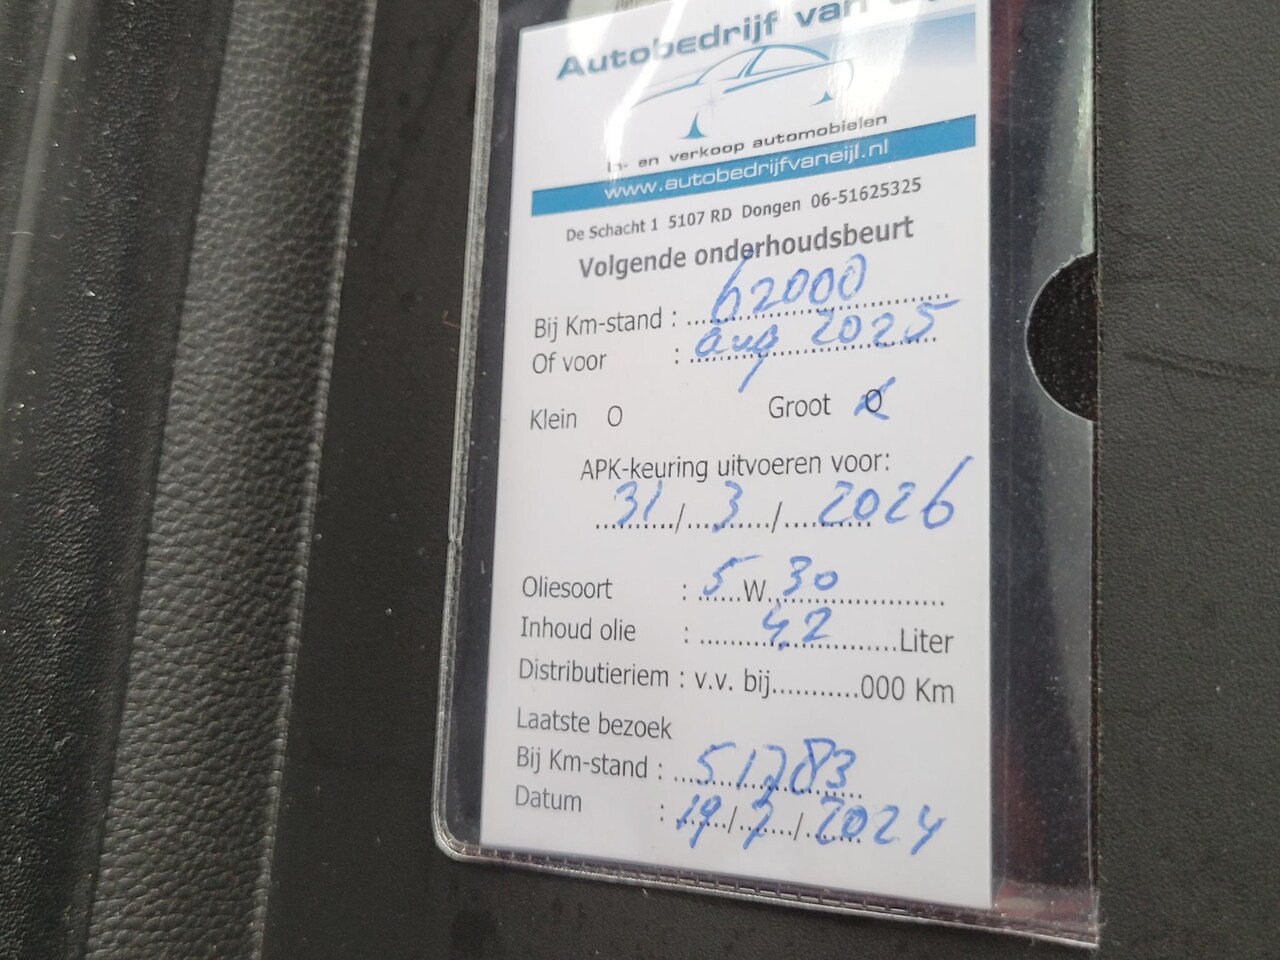 Autobedrijf van
In- en verkoop automobielen
www.autobedrijfvaneijl.nl
De Schacht 1 5107 RD Dongen 06-51625325
Volgende onderhoudsbeurt
Bij Km-stand : 62000
Of voor : aug 2025
Klein O Groot O
APK-keuring uitvoeren voor:
31 / 3 / 2026
Oliesoort : 5 W 30
Inhoud olie : 4,2 Liter
Distributieriem : v.v. bij...........000 Km
Laatste bezoek
Bij Km-stand : 51783
Datum : 19 / 7 / 2024